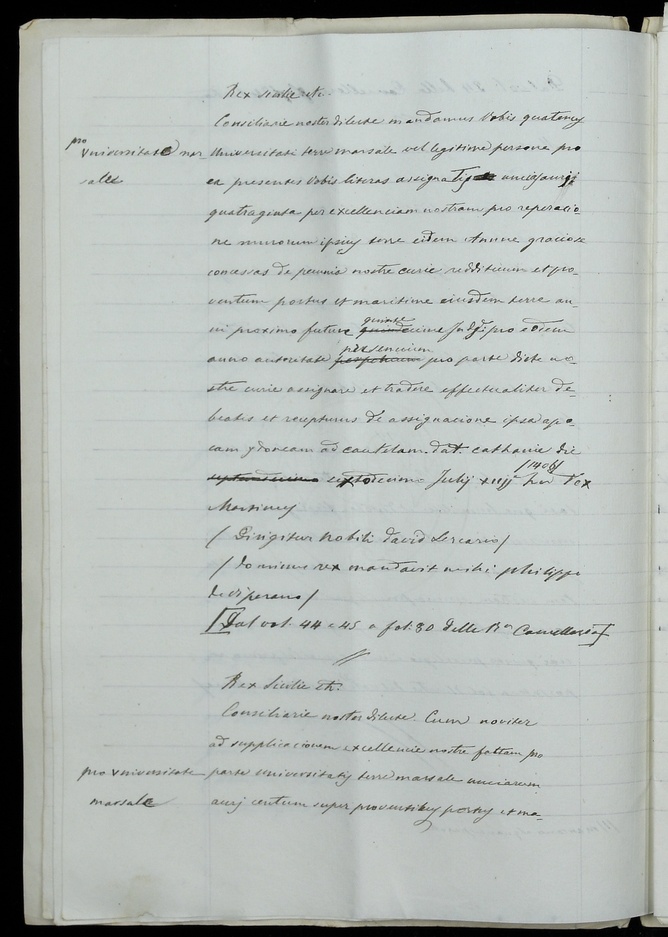 Rex sicilie etc.
Consiliarie noster dilecte mandamus vobis quatenus
pro universitate mar-
sale
universitati terre marsale vel legitime persone pro
ea presentes vobis literas assignatis uncias auri
quatraginta per excellenciam nostram pro reperacio-
ne murorum ipsius terre eidem Annue graciose
concessas de pecunia nostre curie reddituum et pro-
ventum portus et maritime eiusdem terre an-
ni proximo future quinte decime Indi pro eodem
anno autoritate presencium pro parte dicte no-
stre curie assignare et tradere effectualiter de-
beatis et recepturus de assignacione ipsa apo-
cam ydoneam ad cautelam. dat. cathanie die
septimodecimo sextodecimo Julij xiiij Ind Rex
/1406/
Martinus
/ Dirigitur Nobili david Lercario /
/ dominus rex mandavit mihi philippo
de viperano /
[Dal vol. 44 e 45 a fol. 30 delle Rª Cancelleria]
//
Rex Sicilie etc.
Consiliarie noster dilecte. Cum noviter
ad supplicacionem excellencie nostre fattam pro
pro universitate
marsale
parte universitatis terre marsale unciarum
auri centum super proventibus portus et ma-